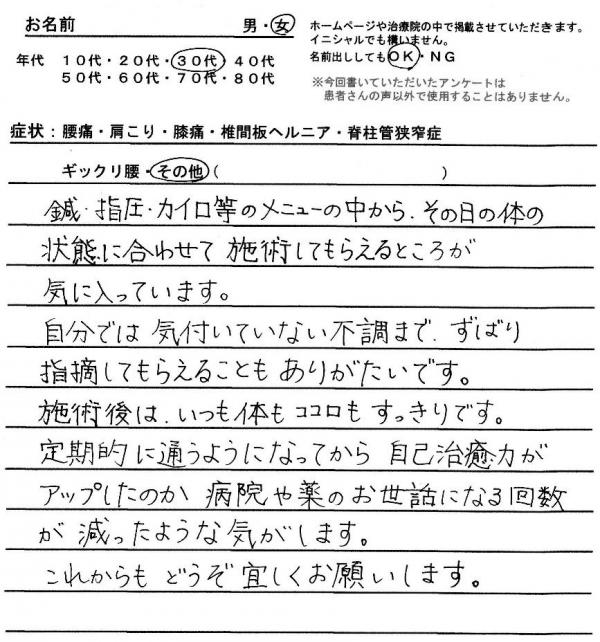 お名前 男・女 ホームページや治療院の中で掲載させていただきます。
イニシャルでも構いません。
年代 10代・20代・30代・40代 名前出ししてもOK・NG
50代・60代・70代・80代 ※今回書いていただいたアンケートは
患者さんの声以外で使用することはありません。
症状:腰痛・肩こり・膝痛・椎間板ヘルニア・脊柱管狭窄症
ギックリ腰・その他( )
鍼・指圧・カイロ等のメニューの中から、その日の体の
状態に合わせて施術してもらえるところが
気に入っています。
自分では気付いていない不調まで、ずばり
指摘してもらえることもありがたいです。
施術後は、いつも体もココロもすっきりです。
定期的に通うようになってから自己治癒力が
アップしたのか病院や薬のお世話になる回数
が減ったような気がします。
これからもどうぞ宜しくお願いします。